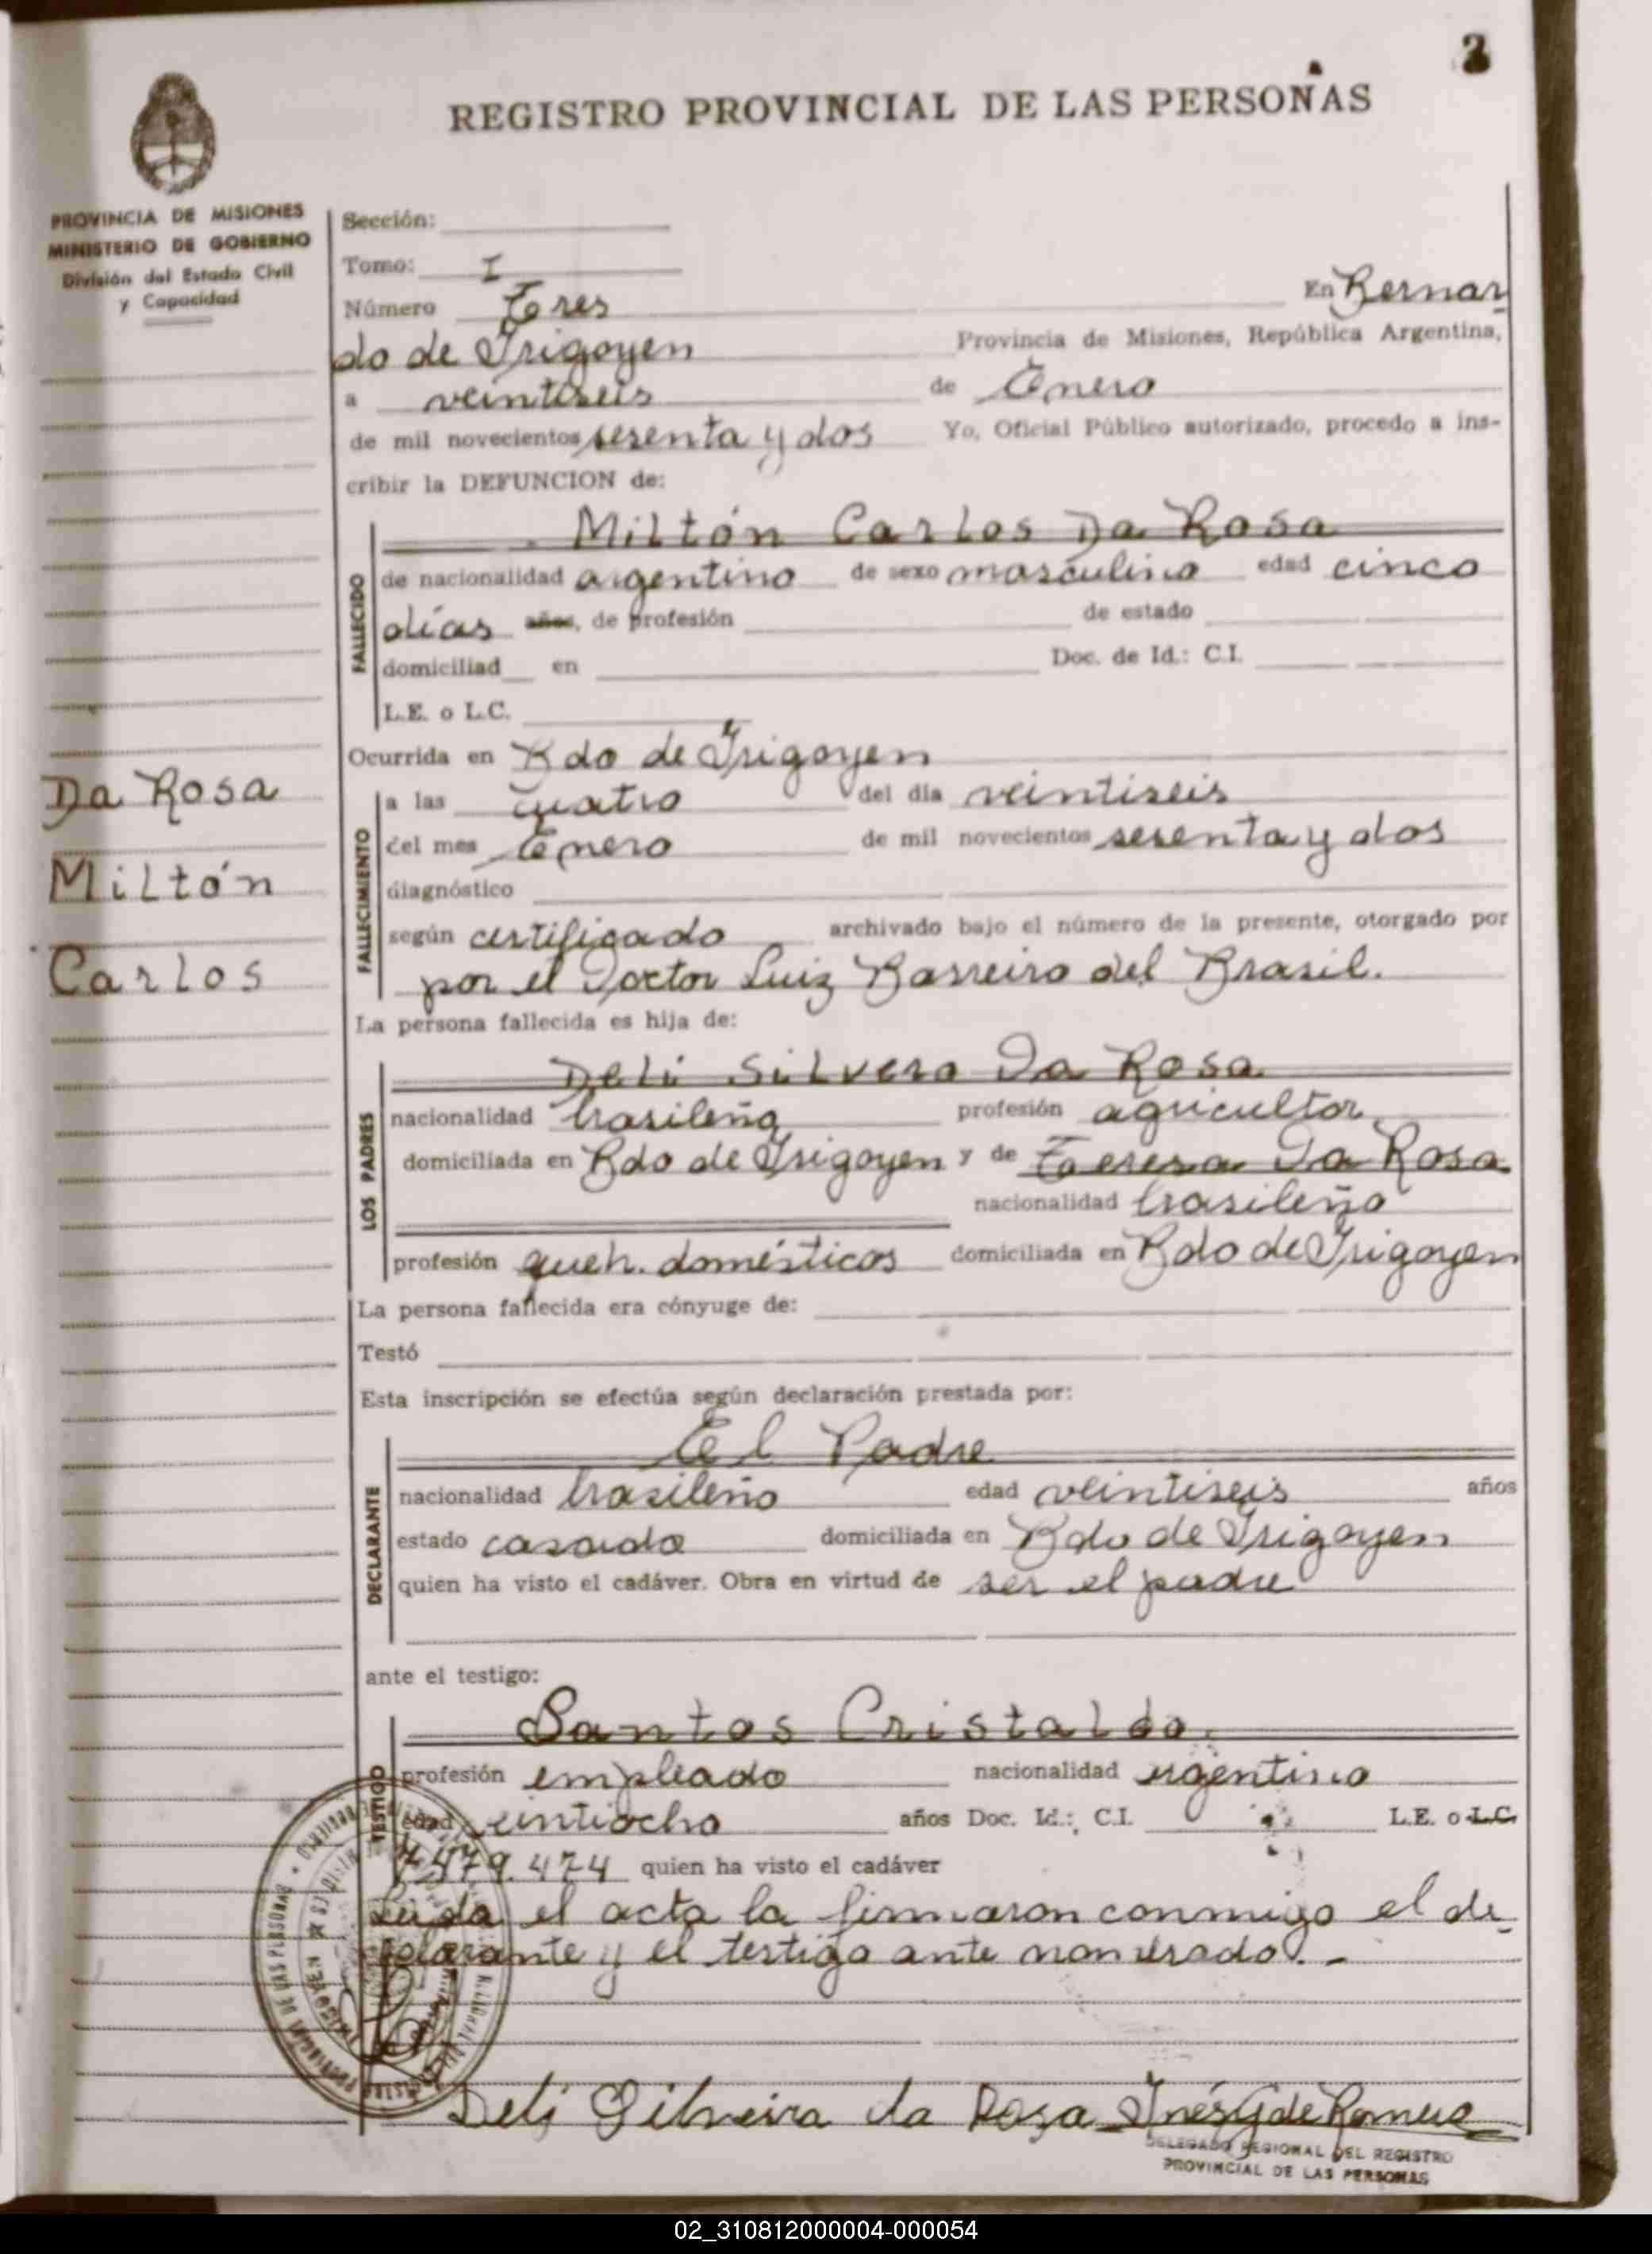 2
REGISTRO PROVINCIAL DE LAS PERSONAS
PROVINCIA DE MISIONES
MINISTERIO DE GOBIERNO
División del Estado Civil
y Capacidad
Sección:
Tomo: I
Número Tres En Bernar
do de Irigoyen Provincia de Misiones, República Argentina,
a veintiseis de Enero
de mil novecientos sesenta y dos Yo, Oficial Público autorizado, procedo a ins-
cribir la DEFUNCION de:
Miltón Carlos Da Rosa
FALLECIDO
de nacionalidad argentino de sexo masculino edad cinco
días años, de profesión de estado
domiciliad en Doc. de Id.: C.I.
L.E. o L.C.
Ocurrida en Bdo de Irigoyen
Da Rosa
Miltón
Carlos
FALLECIMIENTO
a las cuatro del día veintiseis
del mes Enero de mil novecientos sesenta y dos
diagnóstico
según certificado archivado bajo el número de la presente, otorgado por
por el Doctor Luiz Barreiro del Brasil.
La persona fallecida es hija de:
Deli Silvera Da Rosa
LOS PADRES
nacionalidad brasileña profesión agricultor
domiciliada en Bdo de Irigoyen y de Teresa Da Rosa
nacionalidad brasileña
profesión queh. domésticos domiciliada en Bdo de Irigoyen
La persona fallecida era cónyuge de:
Testó
Esta inscripción se efectúa según declaración prestada por:
El Padre
DECLARANTE
nacionalidad brasileño edad veintiseis años
estado casado domiciliada en Bdo de Irigoyen
quien ha visto el cadáver. Obra en virtud de ser el padre
ante el testigo:
Santos Cristaldo
TESTIGO
profesión empleado nacionalidad argentino
edad veintiocho años Doc. Id.: C.I. L.E. o L.C.
7.479.474 quien ha visto el cadáver
Leida el acta la firmaron conmigo el de-
clarante y el testigo ante nombrado. -
Deli Silveira da Rosa Inés G de Romero
DELEGADO REGIONAL DEL REGISTRO
PROVINCIAL DE LAS PERSONAS
02_310812000004-000054